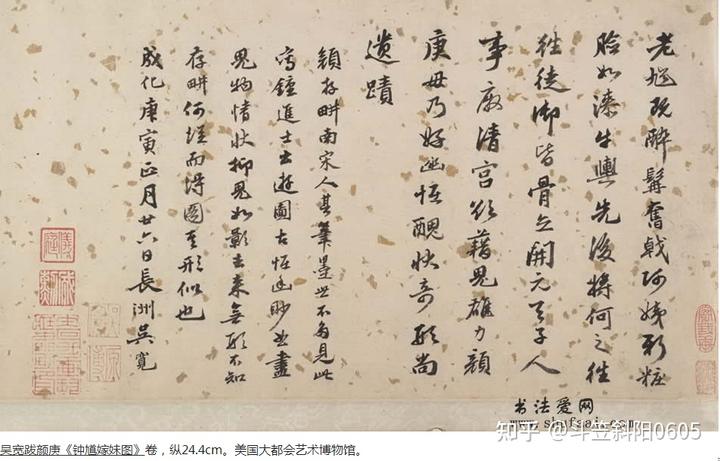 老馗既醉髯奮戟阿姨新粧
臉如漆牛輿先後將何之往
往徒御皆骨立開元天子人
事廢清宮欲藉鬼雄力顔
庚毋乃好幽怪醜狀奇形尚
遺蹟
顔存畊南宋人其筆墨世不多見此
寫鍾進士出遊圖古怪幽眇曲盡
鬼物情狀抑鬼如影去來無形不知
存畊何從而得圖其形似也
成化庚寅正月廿六日長洲吳寬
书法爱网
知乎 @斗笠斜阳0605
吴宽跋颜庚《钟馗嫁妹图》卷，纵24.4cm。美国大都会艺术博物馆。